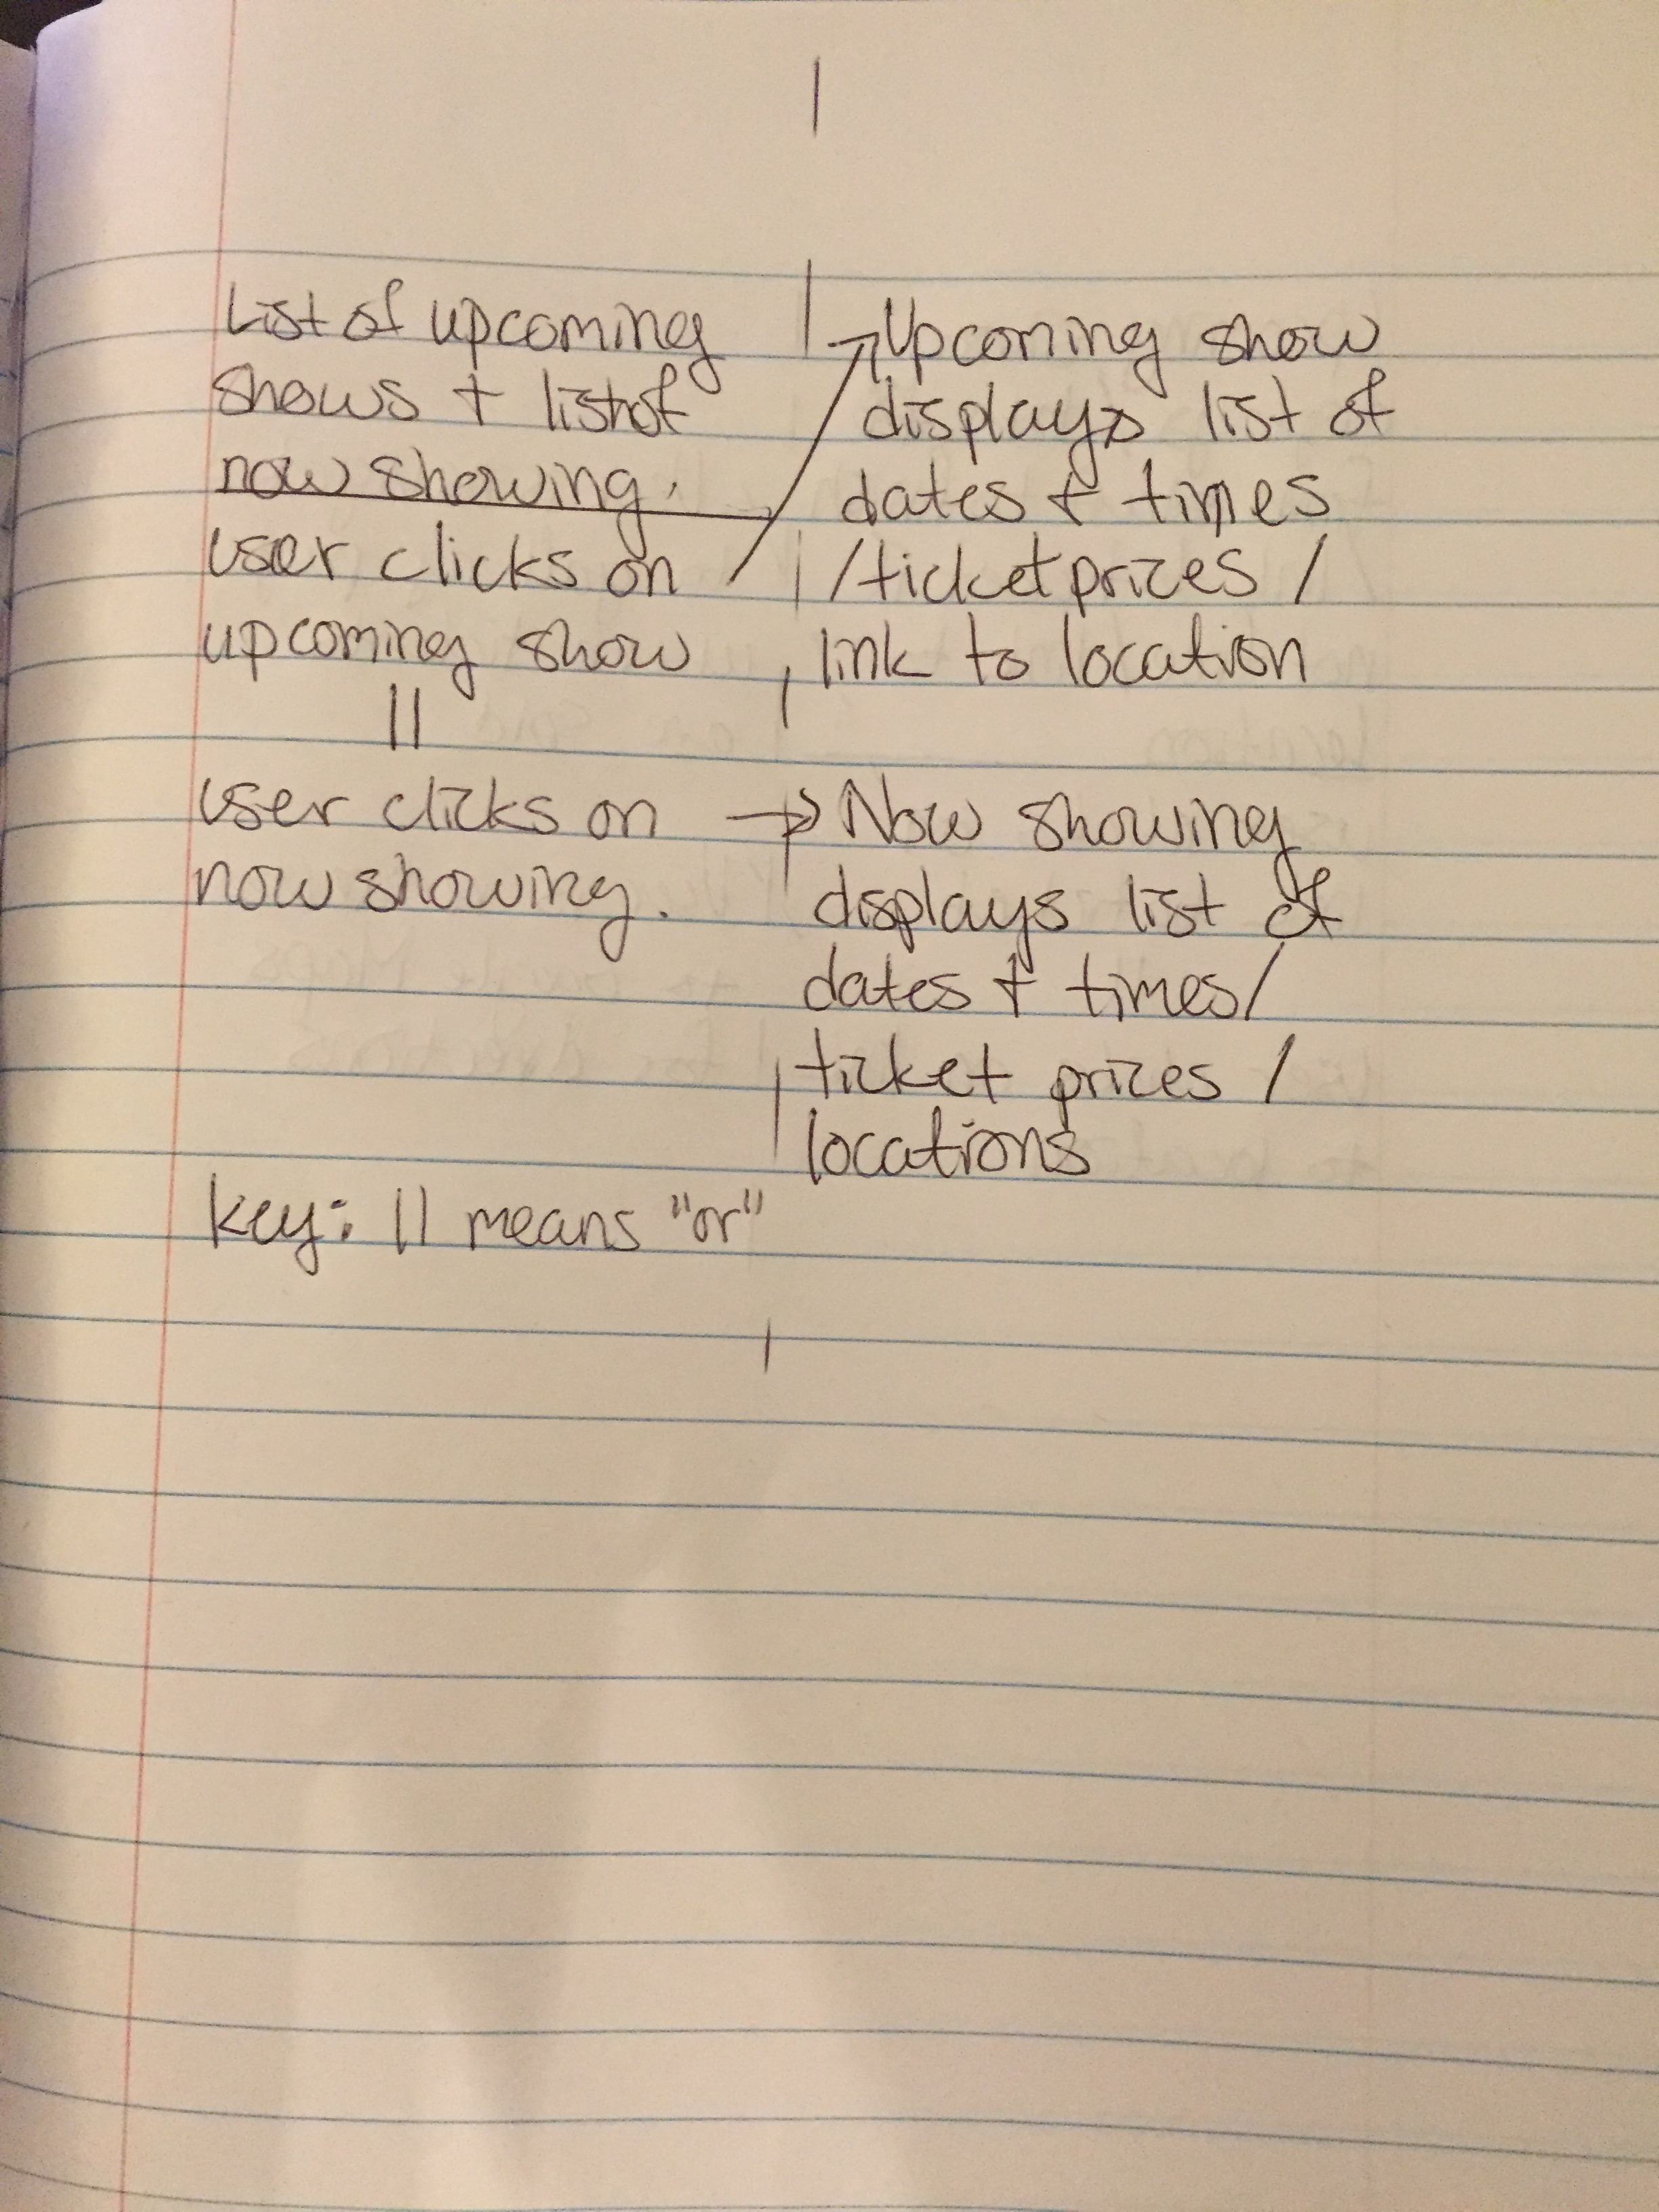 List of upcoming
shows + list of
now showing.
user clicks on
upcoming show
||
user clicks on
now showing.
→ Upcoming show
displays list of
dates + times
/ticket prices /
link to location
→ Now showing
displays list of
dates + times/
ticket prices /
locations
key: || means "or"